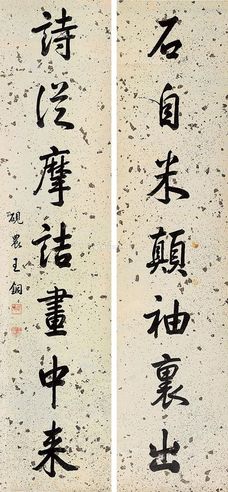 石自米顛袖裏出
詩從摩詰畫中来
硯農王銅